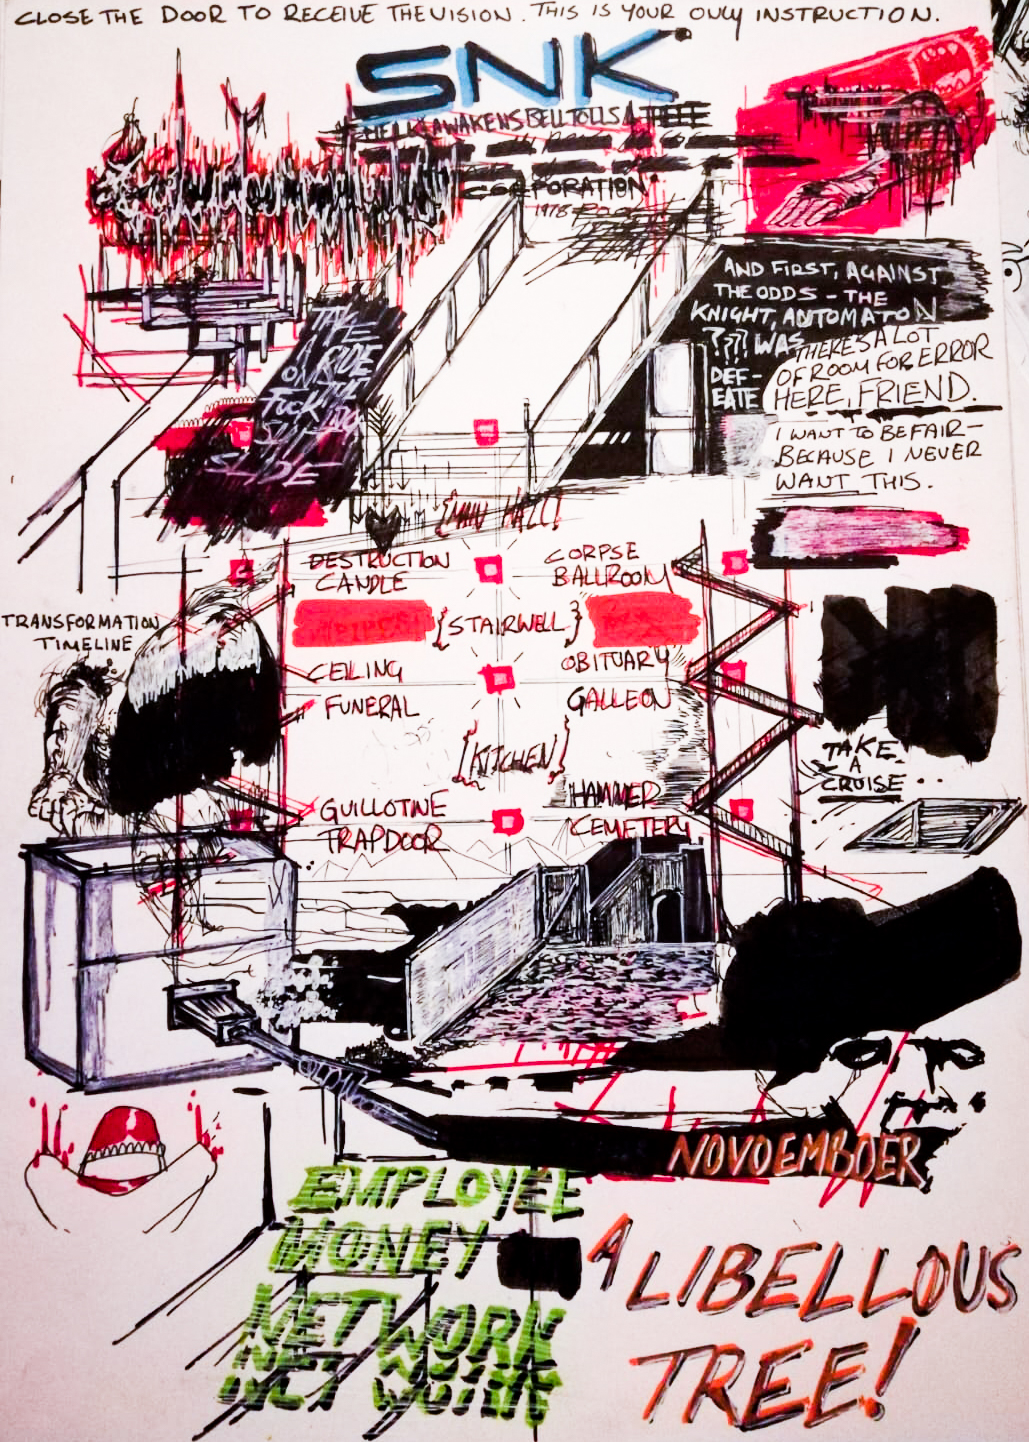 CLOSE THE DOOR TO RECEIVE THE VISION. THIS IS YOUR ONLY INSTRUCTION.
SNK
AWAKENS BELL TOLLS A
CORPORATION
1978
AND FIRST, AGAINST
THE ODDS - THE
KNIGHT, AUTOMATON
???! WAS
DEF-
EATE
THERE'S A LOT
OF ROOM FOR ERROR
HERE, FRIEND.
I WANT TO BE FAIR-
BECAUSE I NEVER
WANT THIS.
TAKE
A RIDE
ON THAT
FUCKING
SLIP
SLIDE
[MAIN HALL]
DESTRUCTION
CANDLE
CORPSE
BALLROOM
{STAIRWELL}
TRANSFORMATION
TIMELINE
CEILING
FUNERAL
OBITUARY
GALLEON
[KITCHEN]
TAKE
A
CRUISE...
GUILLOTINE
TRAPDOOR
HAMMER
CEMETERY
NOVOEMBOER
EMPLOYEE
MONEY
NETWORK
NET WORK
NET WORK
A LIBELLOUS
TREE!